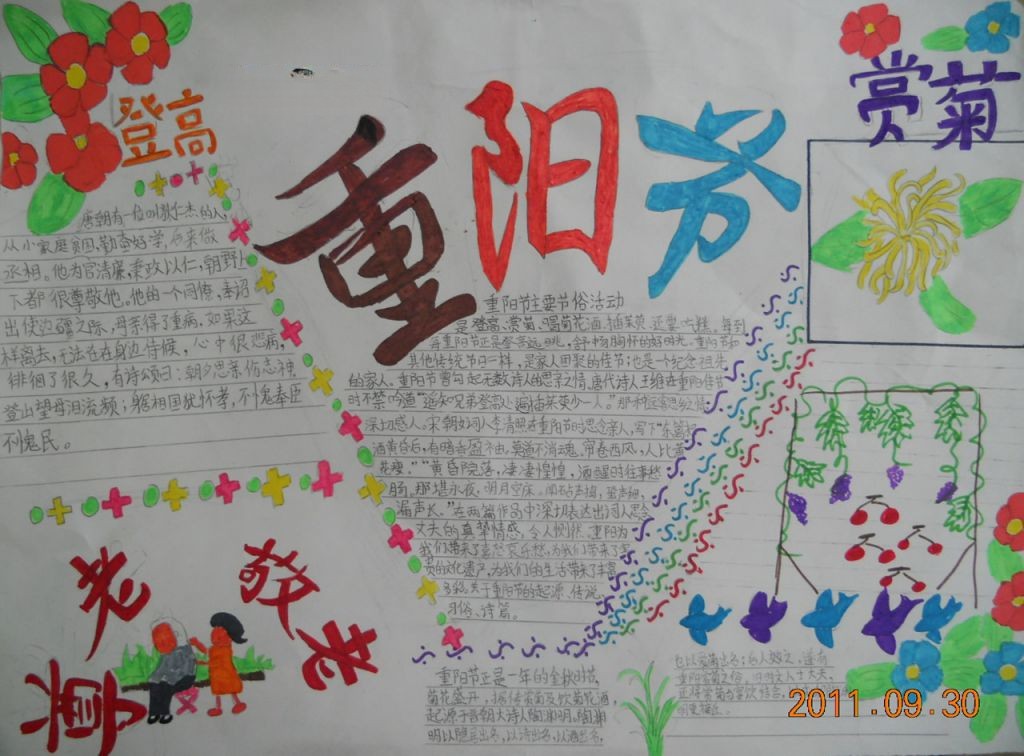 登高
重阳节
赏菊
唐朝有一位叫狄仁杰的人,
从小家庭贫困,勤奋好学,后来做
丞相。他为官清廉,秉政以仁,朝野上
下都很尊敬他。他的一个同僚,奉诏
出使边疆之际,母亲得了重病,如果这
样离去,无法在在身边侍候,心中很悲痛,
徘徊了很久,有诗颂曰:朝夕思亲伤志神
登山望母泪流频;躬相国犹怀孝,不愧奉臣
不愧民。
重阳节主要节俗活动
是登高、赏菊、喝菊花酒、插茱萸、还要吃糕,每到
重阳节正是登高远眺,舒畅胸怀的好时光。重阳节和
其他传统节日一样,是家人团聚的佳节;也是一个纪念祖先
的家人。重阳节曾勾起无数诗人的思亲之情,唐代诗人王维在重阳佳节
时不禁吟道"遥知兄弟登高处,遍插茱萸少一人。"那种
深切感人。宋朝女词人李清照在重阳节时思念亲人,写下"东篱把
酒黄昏后,有暗香盈袖,莫道不消魂,帘卷西风,人比黄
花瘦。""黄昏院落,凄凄惶惶,酒醒时往事愁
肠,那堪永夜,明月空床。闻砧声捣,蛩声细,
漏声长。"在两篇作品中深切表达出词人思念
丈夫的真挚情感,令人恻然。重阳为
我们带来了喜怒哀乐愁,为我们带来了宝
贵的文化遗产,为我们的生活带来了丰富
多彩关于重阳节的起源、传说、
习俗、诗篇。
老
敬
老
重阳节正是一年的金秋时节,
菊花盛开,据传赏菊及饮菊花酒,
起源于晋朝大诗人陶渊明。陶渊
明以隐居出名,以诗出名,以酒出名,
也以爱菊出名;后人效之,遂有
重阳赏菊之俗。旧时文人士大夫,
2011.09.30